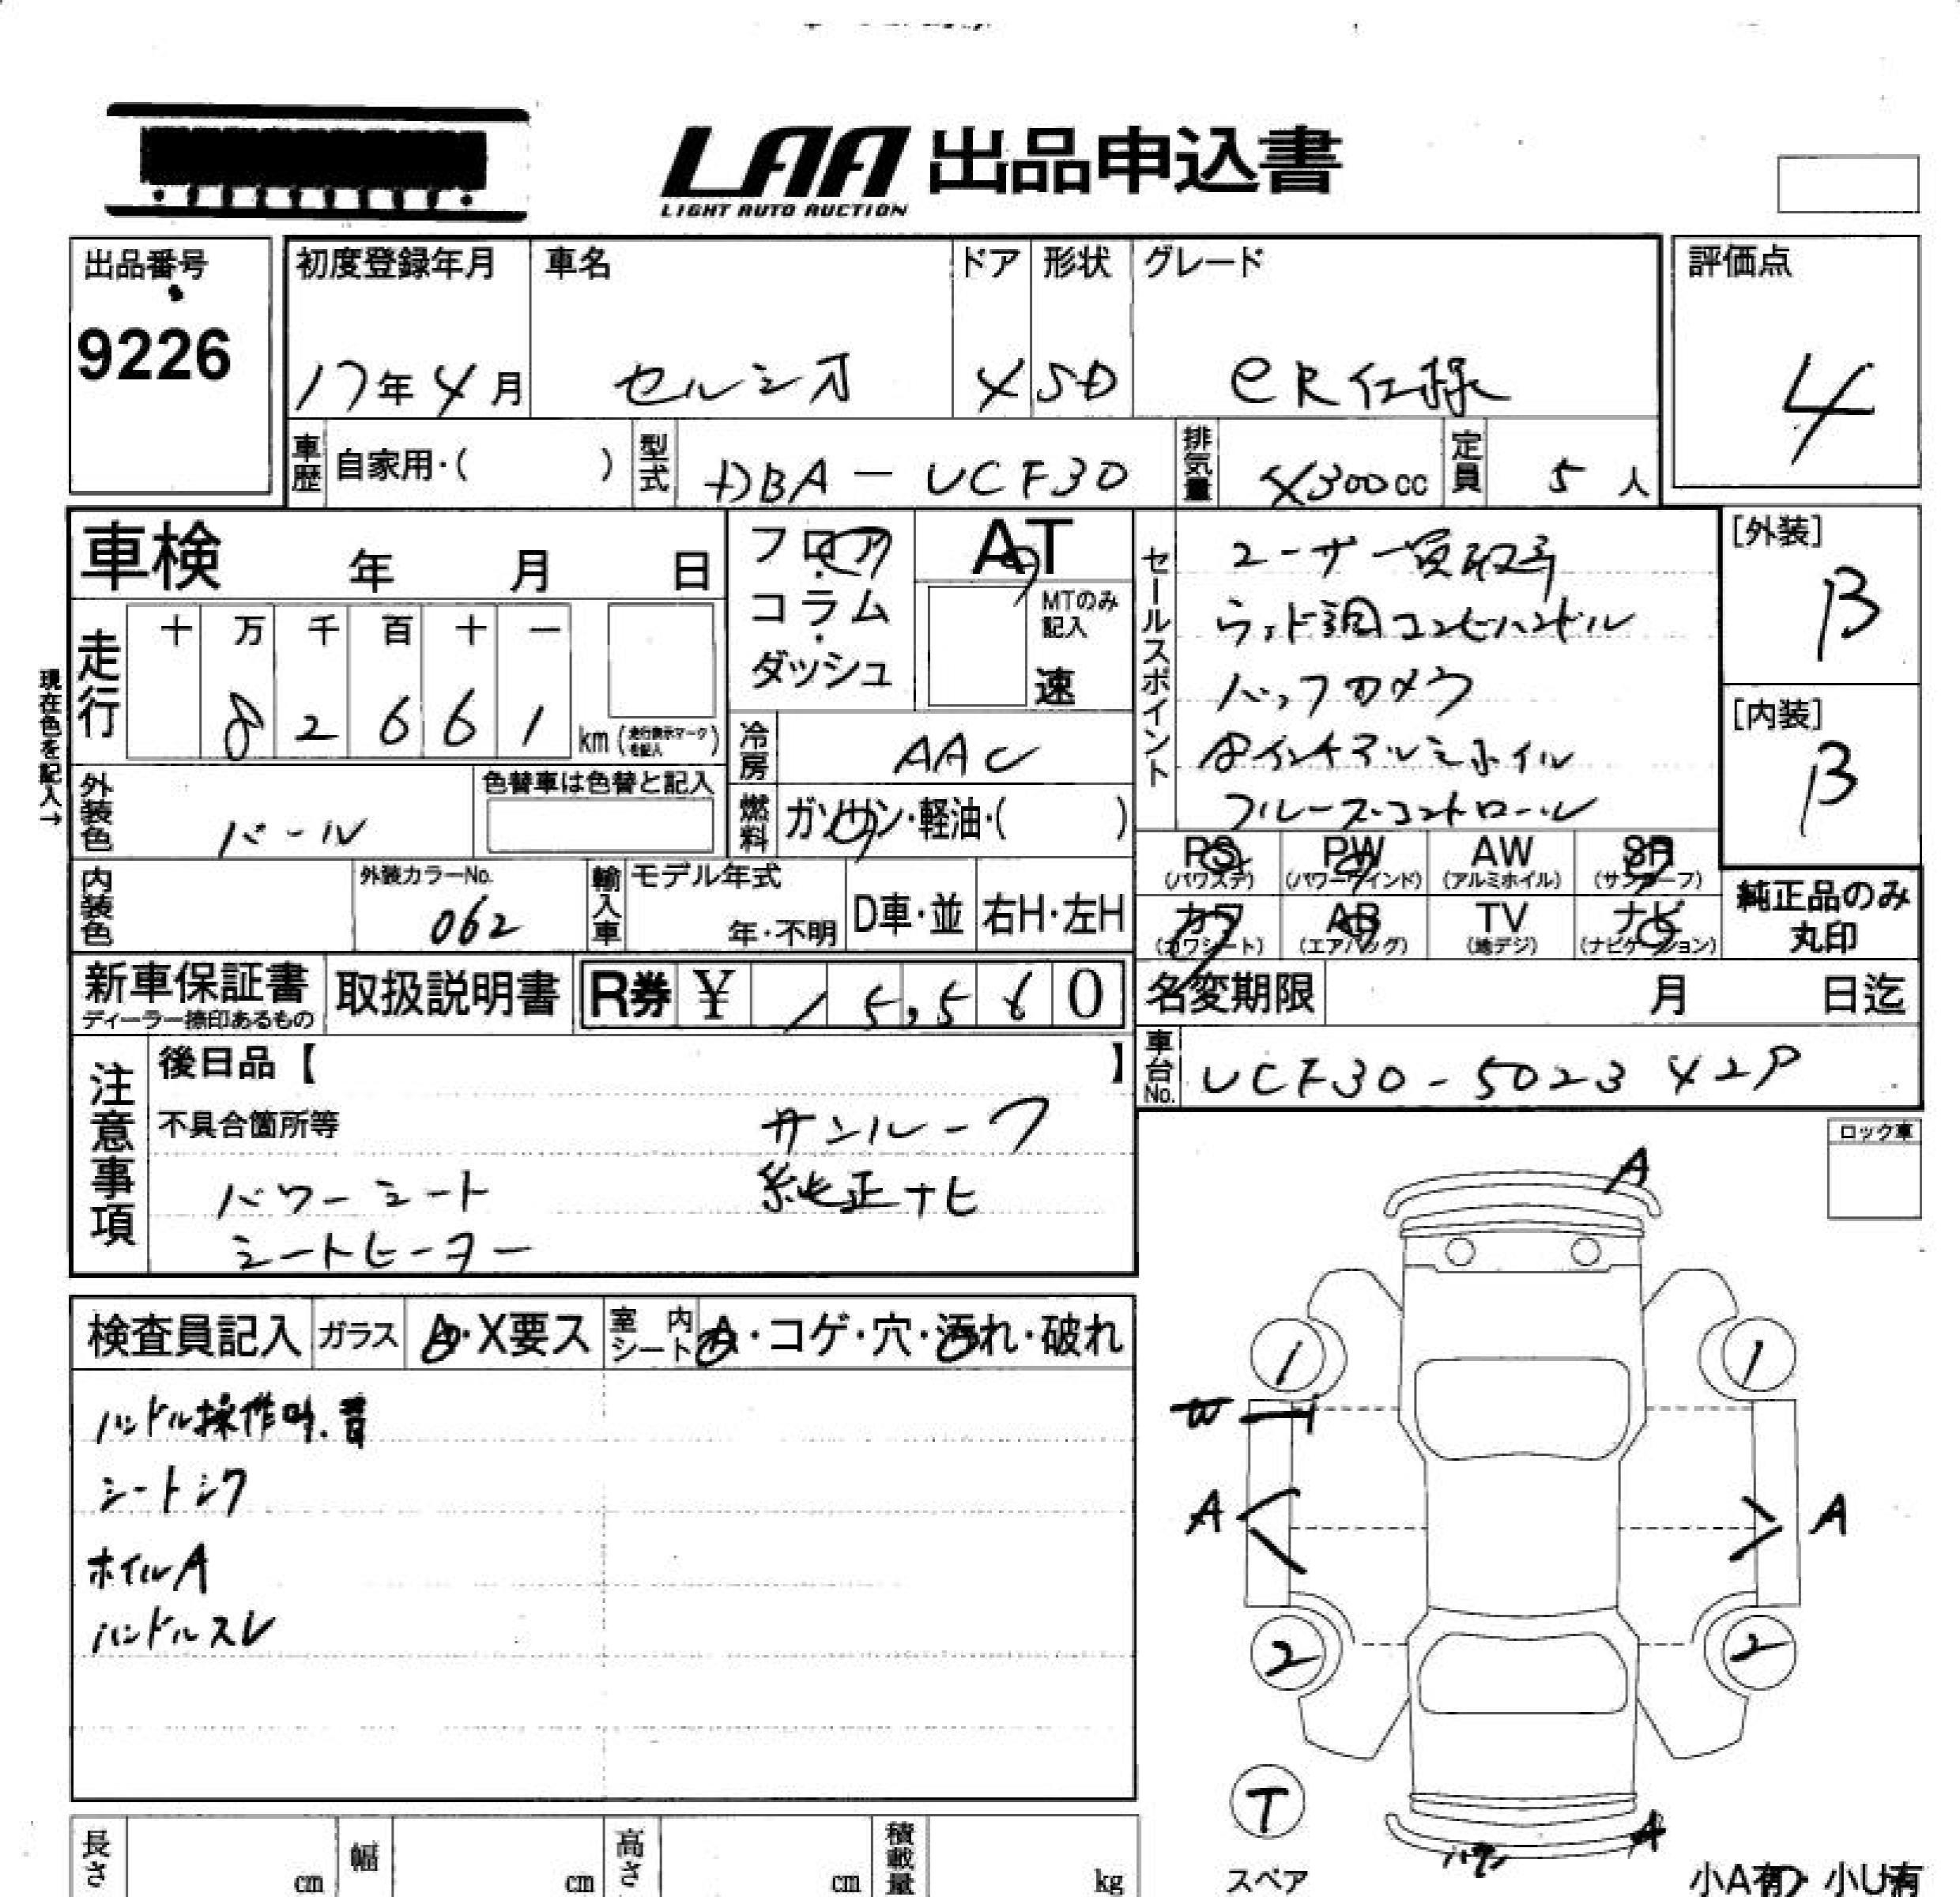 LAA 出品申込書
LIGHT AUTO AUCTION
出品番号
9226
初度登録年月
17年4月
車名
セルシオ
ドア
4
形状
SD
グレード
eR仕様
評価点
4
車歴
自家用・( )
型式
DBA-UCF30
排気量
4300cc
定員
5人
車検 年 月 日
フロア・コラム・ダッシュ
AT
MTのみ記入
速
セールスポイント
ユーザー買取車
ウッド調コンビハンドル
バックカメラ
18インチアルミホイル
クルーズコントロール
[外装]
B
[内装]
B
現在色を記入→
走行
十 万 千 百 十 一
8 2 6 6 1
km (走行表示マークを記入)
冷房
AAC
外装色
パール
色替車は色替と記入
燃料
ガソリン・軽油・( )
内装色
外装カラーNo.
062
輸入車
モデル年式
年・不明
D車・並
右H・左H
PS (パワステ)
PW (パワーウインド)
AW (アルミホイル)
SR (サンルーフ)
カワ (カワシート)
AB (エアバッグ)
TV (地デジ)
ナビ (ナビゲーション)
純正品のみ丸印
新車保証書
ディーラー捺印あるもの
取扱説明書
R券 ¥ 15,560
名変期限 月 日迄
車台No.
UCF30-5023429
注意事項
後日品【 】
不具合箇所等
サンルーフ
パワーシート 純正ナビ
シートヒーター
ロック車
検査員記入
ガラス
A・X要ス
室内シート
A・コゲ・穴・汚れ・破れ
ハンドル操作時.音
シートシワ
ホイルA
ハンドルスレ
A
1 1
W
A A
2 2
T
スペア
A
小A有・小U有
長さ cm
幅 cm
高さ cm
積載量 kg